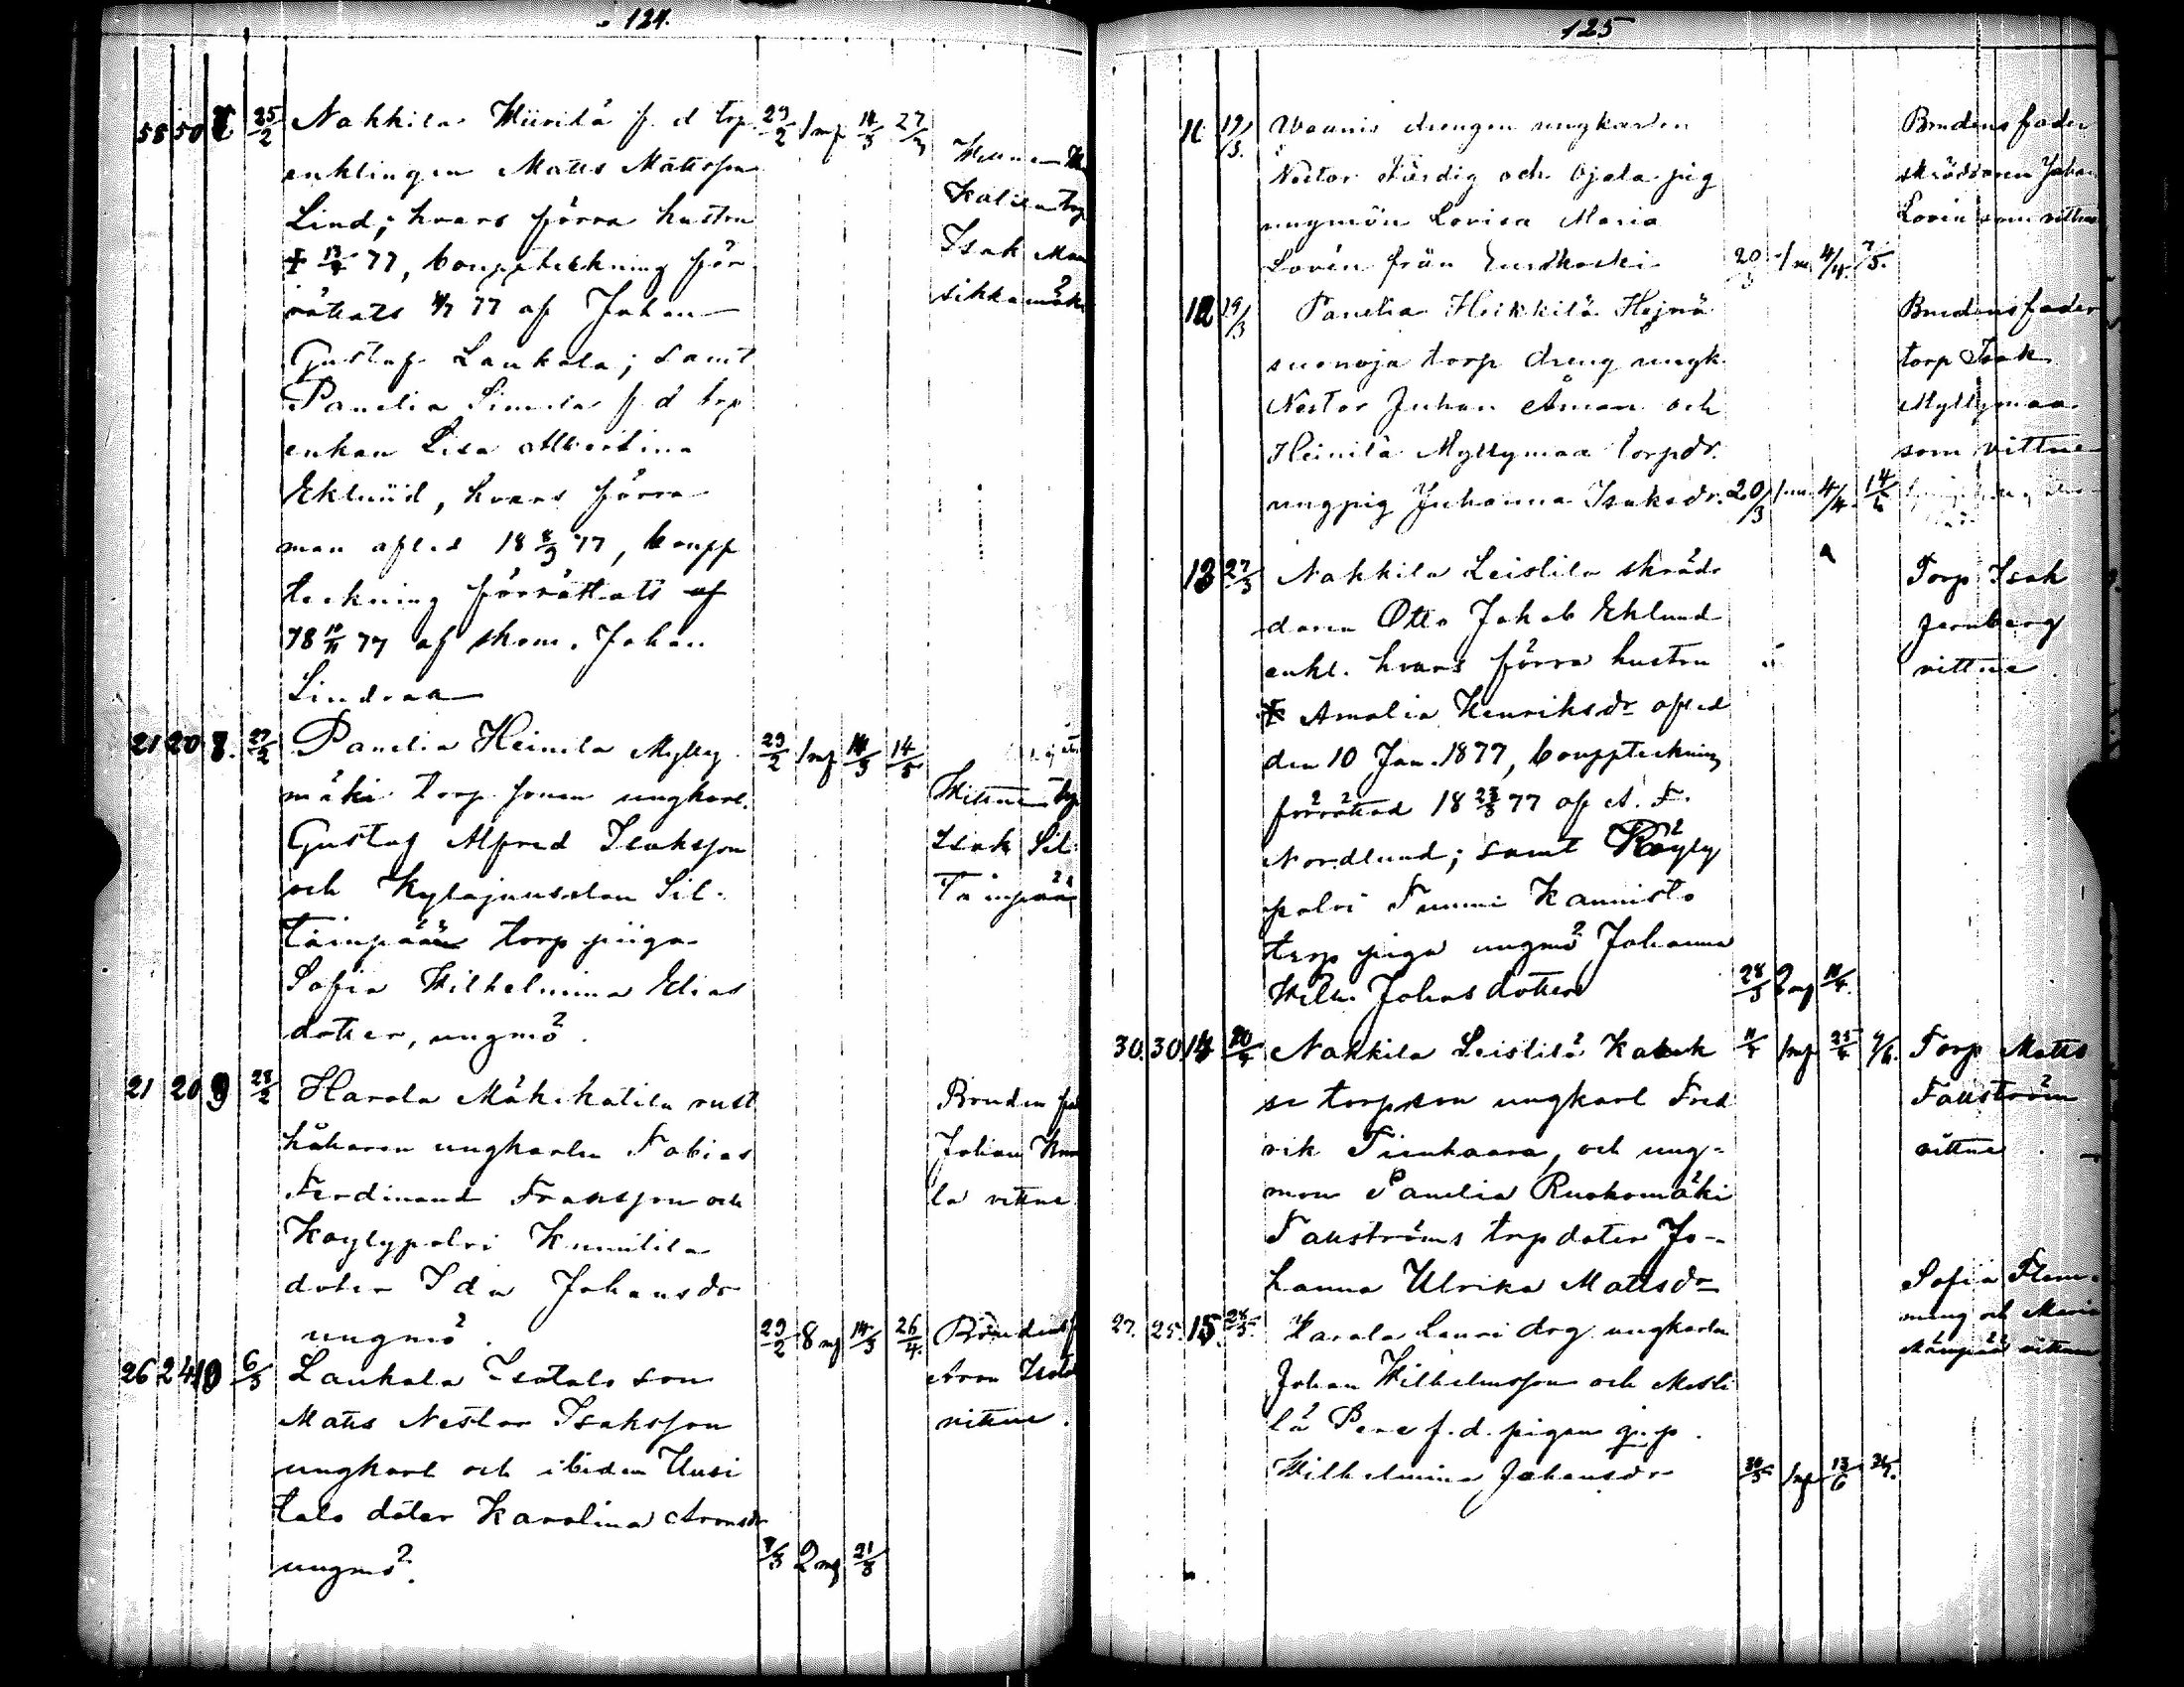 124.
55 50 7 25/2 Nakkila Wiirilä f. d. trp. 29/2 1 mf 14/3 27/3
enklingen Matts Mattsson
Lind; hvars förra hustru
77, bouppteckning för
rättats 77 af Johan
Gustaf Laukola; samt
Panelia Simula f d trp
enkan Lisa Albertina
Eklund, hvars förra
man afled 18 8/3 77, boupp
teckning förrättats af
18 77 af skom. Johan
Lindroa
Isak Man
sikkamäki
21 20 8. 27/2 Panelia Heinila Mylly 29/2 1 mf 14/3 14/5
mäki torp sonen ungkarl.
Gustaf Alfred Isaksson
och Kylajuuselan Sil.
täinpään torp piiga
Sofia Wilhelmina Elias
dotter, ungmö.
Isak Sil
Tainpään
21 20 9 28/2 Harola Mäkikatila rust
hållaren ungkarlen Tobias
Ferdinand Fransson och
Koylypolvi Kunnilila
doter Ida Johansdr
ungmö. 29/2 8 mf 14/3 26/4.
Bruden fa
Johan Kun
la vittne
26 24 10 6/3 Laukola Isotalo son
Matts Nestor Isaksson
ungkarl och ibidem Uusi
talo doter Karolina Aronsdr
ungmö. 7/3 2 mf 21/3
Brudens f
Aron Isota
vittne.
125
11. 19/3. Woanis drengen ungkarlen
Nestor Färdig och Ojala pig
ungmön Lovisa Maria
Lovén från Euskoski 20/3 1 m 4/4. 7/5.
Brudens fader
skräddaren Johan
Lovén som vittne
12 19/3 Panelia Heikkilä Hejnä
suonoja torp dreng ungk.
Nestor Juhan Åman och
Heinilä Myllymaa torpdr.
ungpig Juhanna Isaksdr. 20/3 1 m 4/4. 14/6
Brudens fader
torp Isak
Myllymaa
som vittne
13 27/3 Nakkila Leistila skräd
daren Otto Jakob Eklund
enkl. hvars förra hustru
Amalia Henriksdr afled
den 10 Jan. 1877, bouppteckning
förrättad 18 23/3 77 af A. F.
Nordlund; samt Köyly
polvi Tummi Kannisto
torp piga ungmö Johanna
Wilh. Johansdotter 28/3 2 mf
Torp Isak
Jernberg
vittne
30. 30 14 Nakkila Leistilä Katak
se torpson ungkarl Fred
rik Tienhaara, och ung-
mon Panelia Ruohomäki
Fallströms trp doter Jo-
hanna Ulrika Mattsdr
Torp Matts
Fallström
vittne
27. 25. 15. Harola Lauri drg ungkarlen
Johan Wilhelmsson och Mesti
lä Pere f. d. pigan
Wilhelmina Johansdr 13/6
Sofia Flem
ming och Maria
vittne